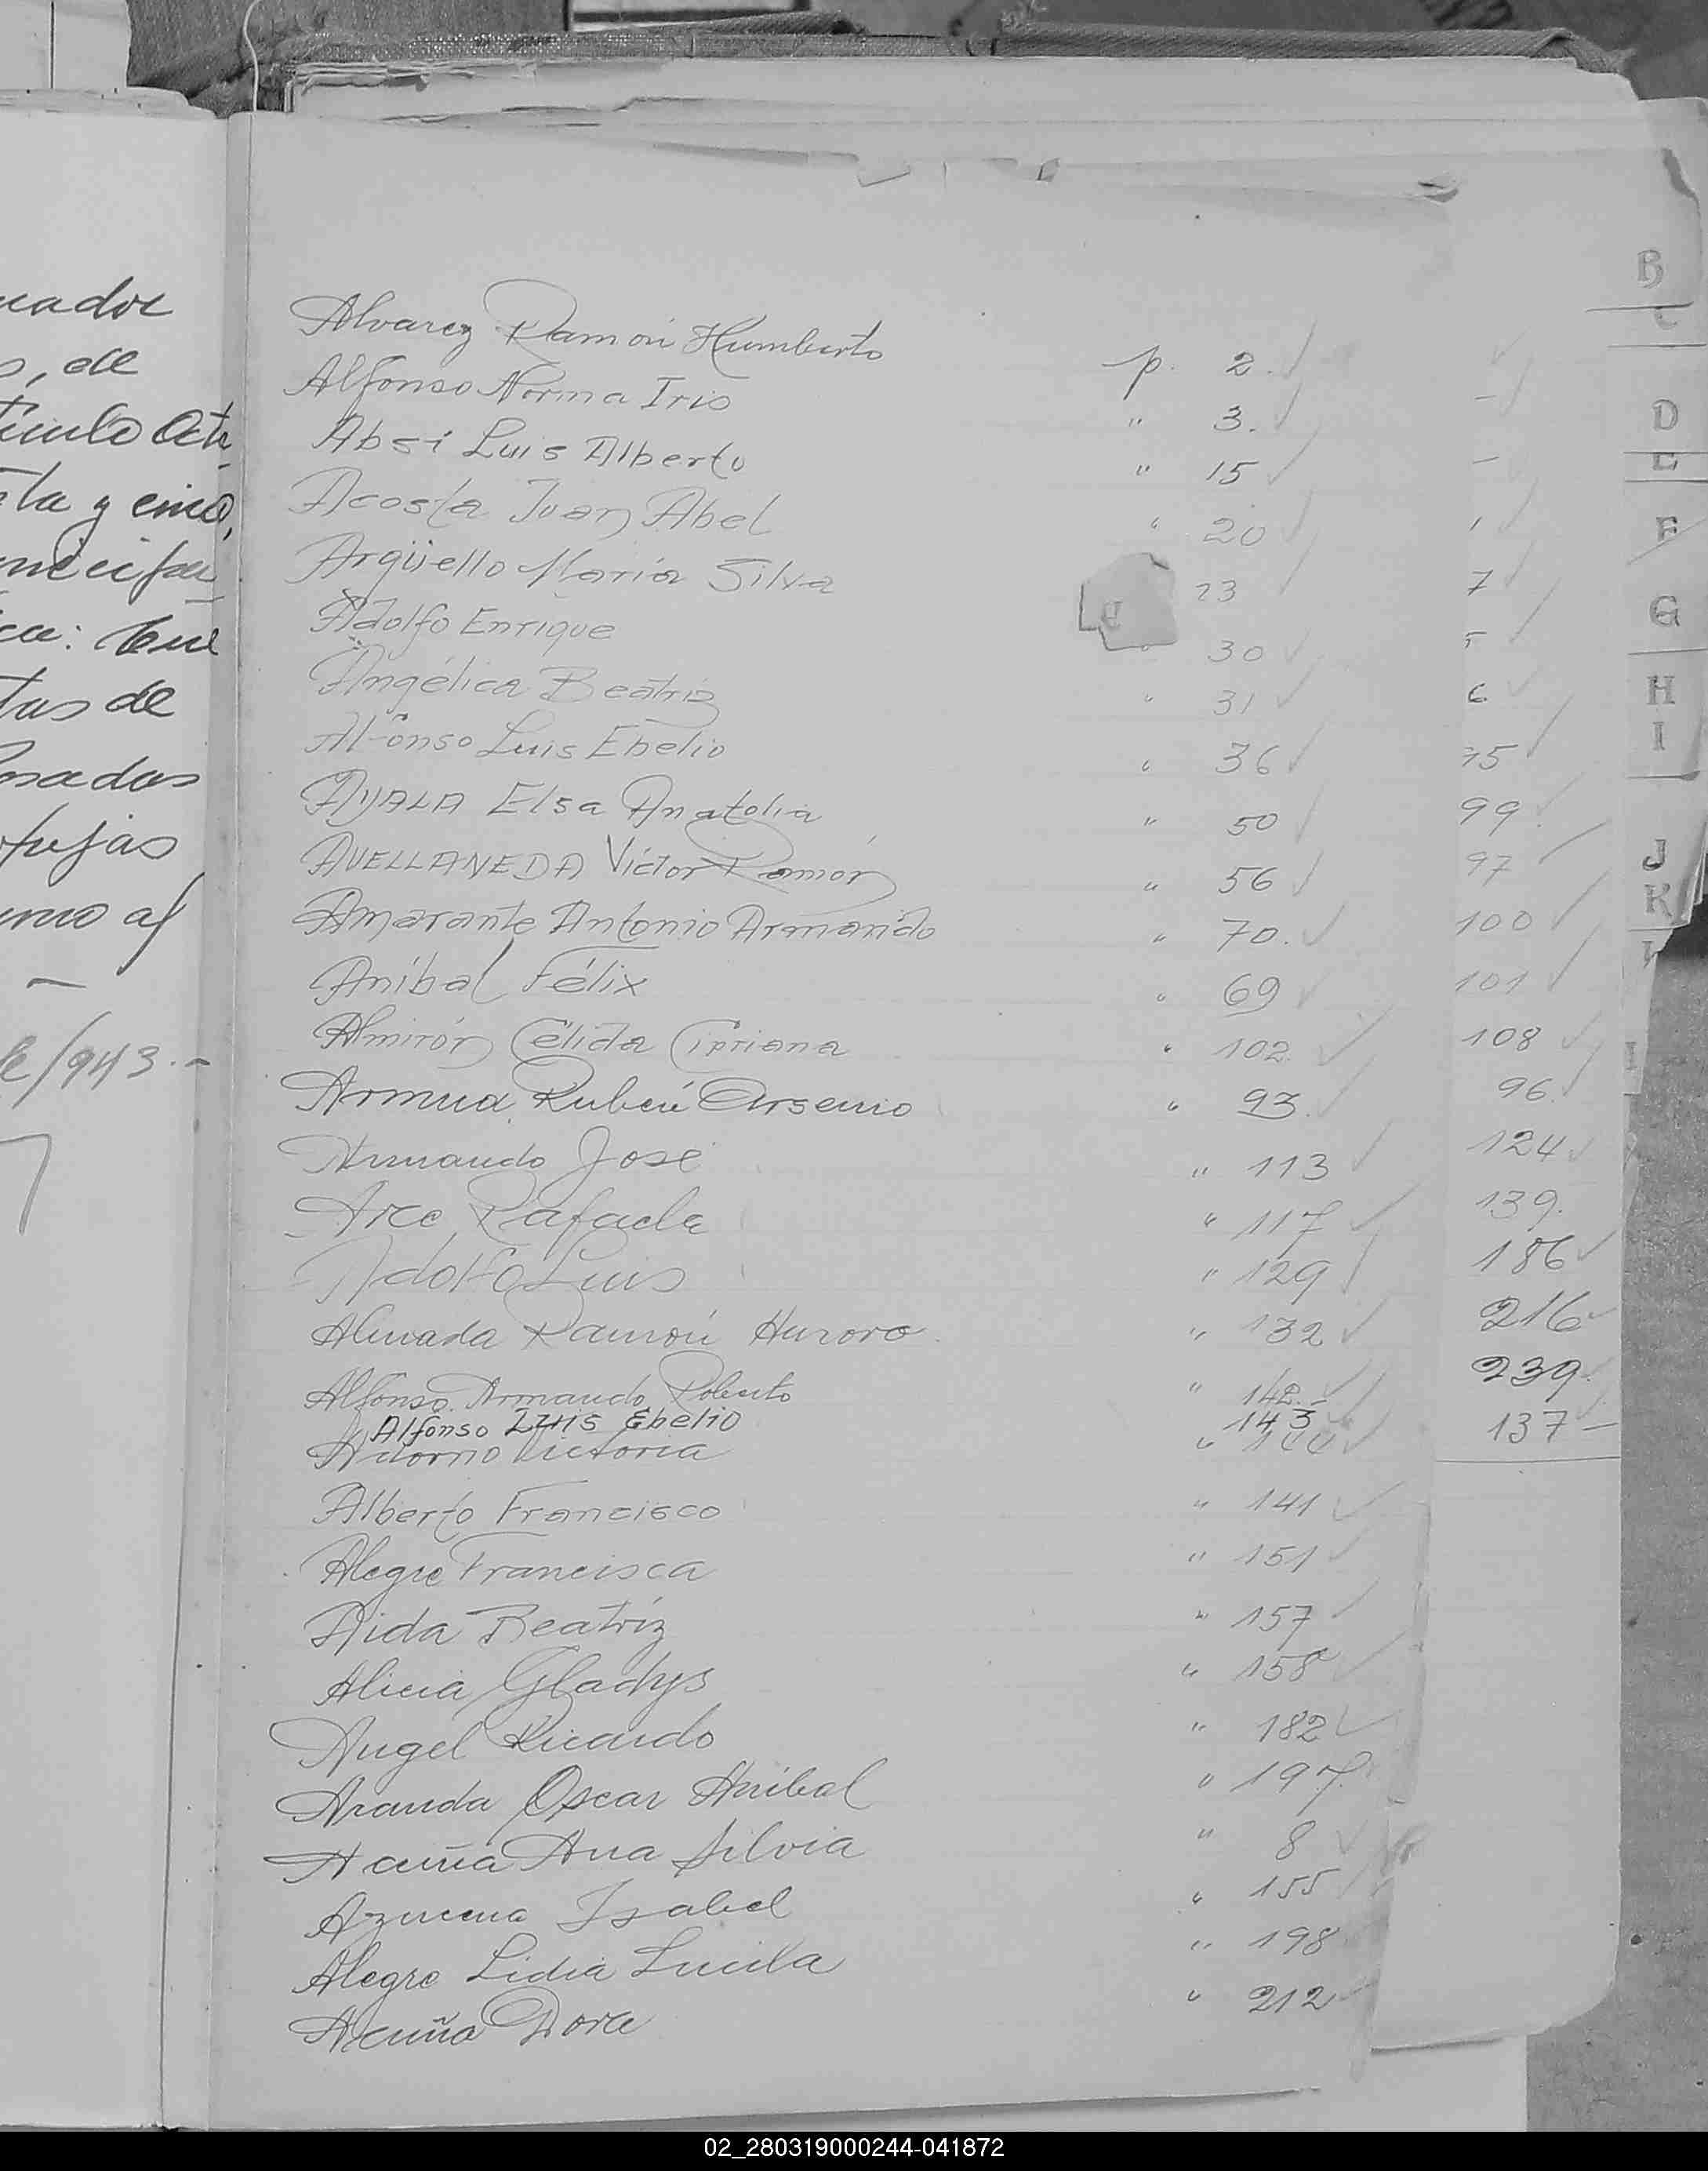 uador
s, ell
tículo Octa
ta y cinco,
tas de
osadas
pujas
umo al
e/943.-
Alvarez Ramón Humberto p. 2.
Alfonso Norma Iris " 3.
Absi Luis Alberto " 15
Acosta Juan Abel " 20
Argüello María Silva 23 7
Adolfo Enrique " 30
Angélica Beatriz " 31 6
Alfonso Luis Ebelio " 36 75
AYALA Elsa Anatolia " 50 99
AVELLANEDA Víctor Ramón " 56 97
Amarante Antonio Armando " 70. 100
Aníbal Félix " 69 101
Almirón Célida Cipriana " 102. 108
Armua Rubén Arsenio " 93. 96.
Armando José " 113 124
Arce Rafaela " 117 139.
Adolfo Luis " 129 186
Almada Ramón Auroro " 132 216
Alfonso Armando Roberto " 142.- 239.
Alfonso Luis Ebelio 143 137-
Adorno Victoria " 144
Alberto Francisco " 141
Alegre Francisca " 151
Aida Beatríz " 157
Alicia Gladys " 158
Angel Ricardo " 182
Aranda Oscar Anibal " 197.
Acuña Ana Silvia " 8
Azucena Isabel " 155
Alegre Lidia Lucila " 198
Acuña Dora " 212
B
C
D
E
F
G
H
I
J
K
02_280319000244-041872